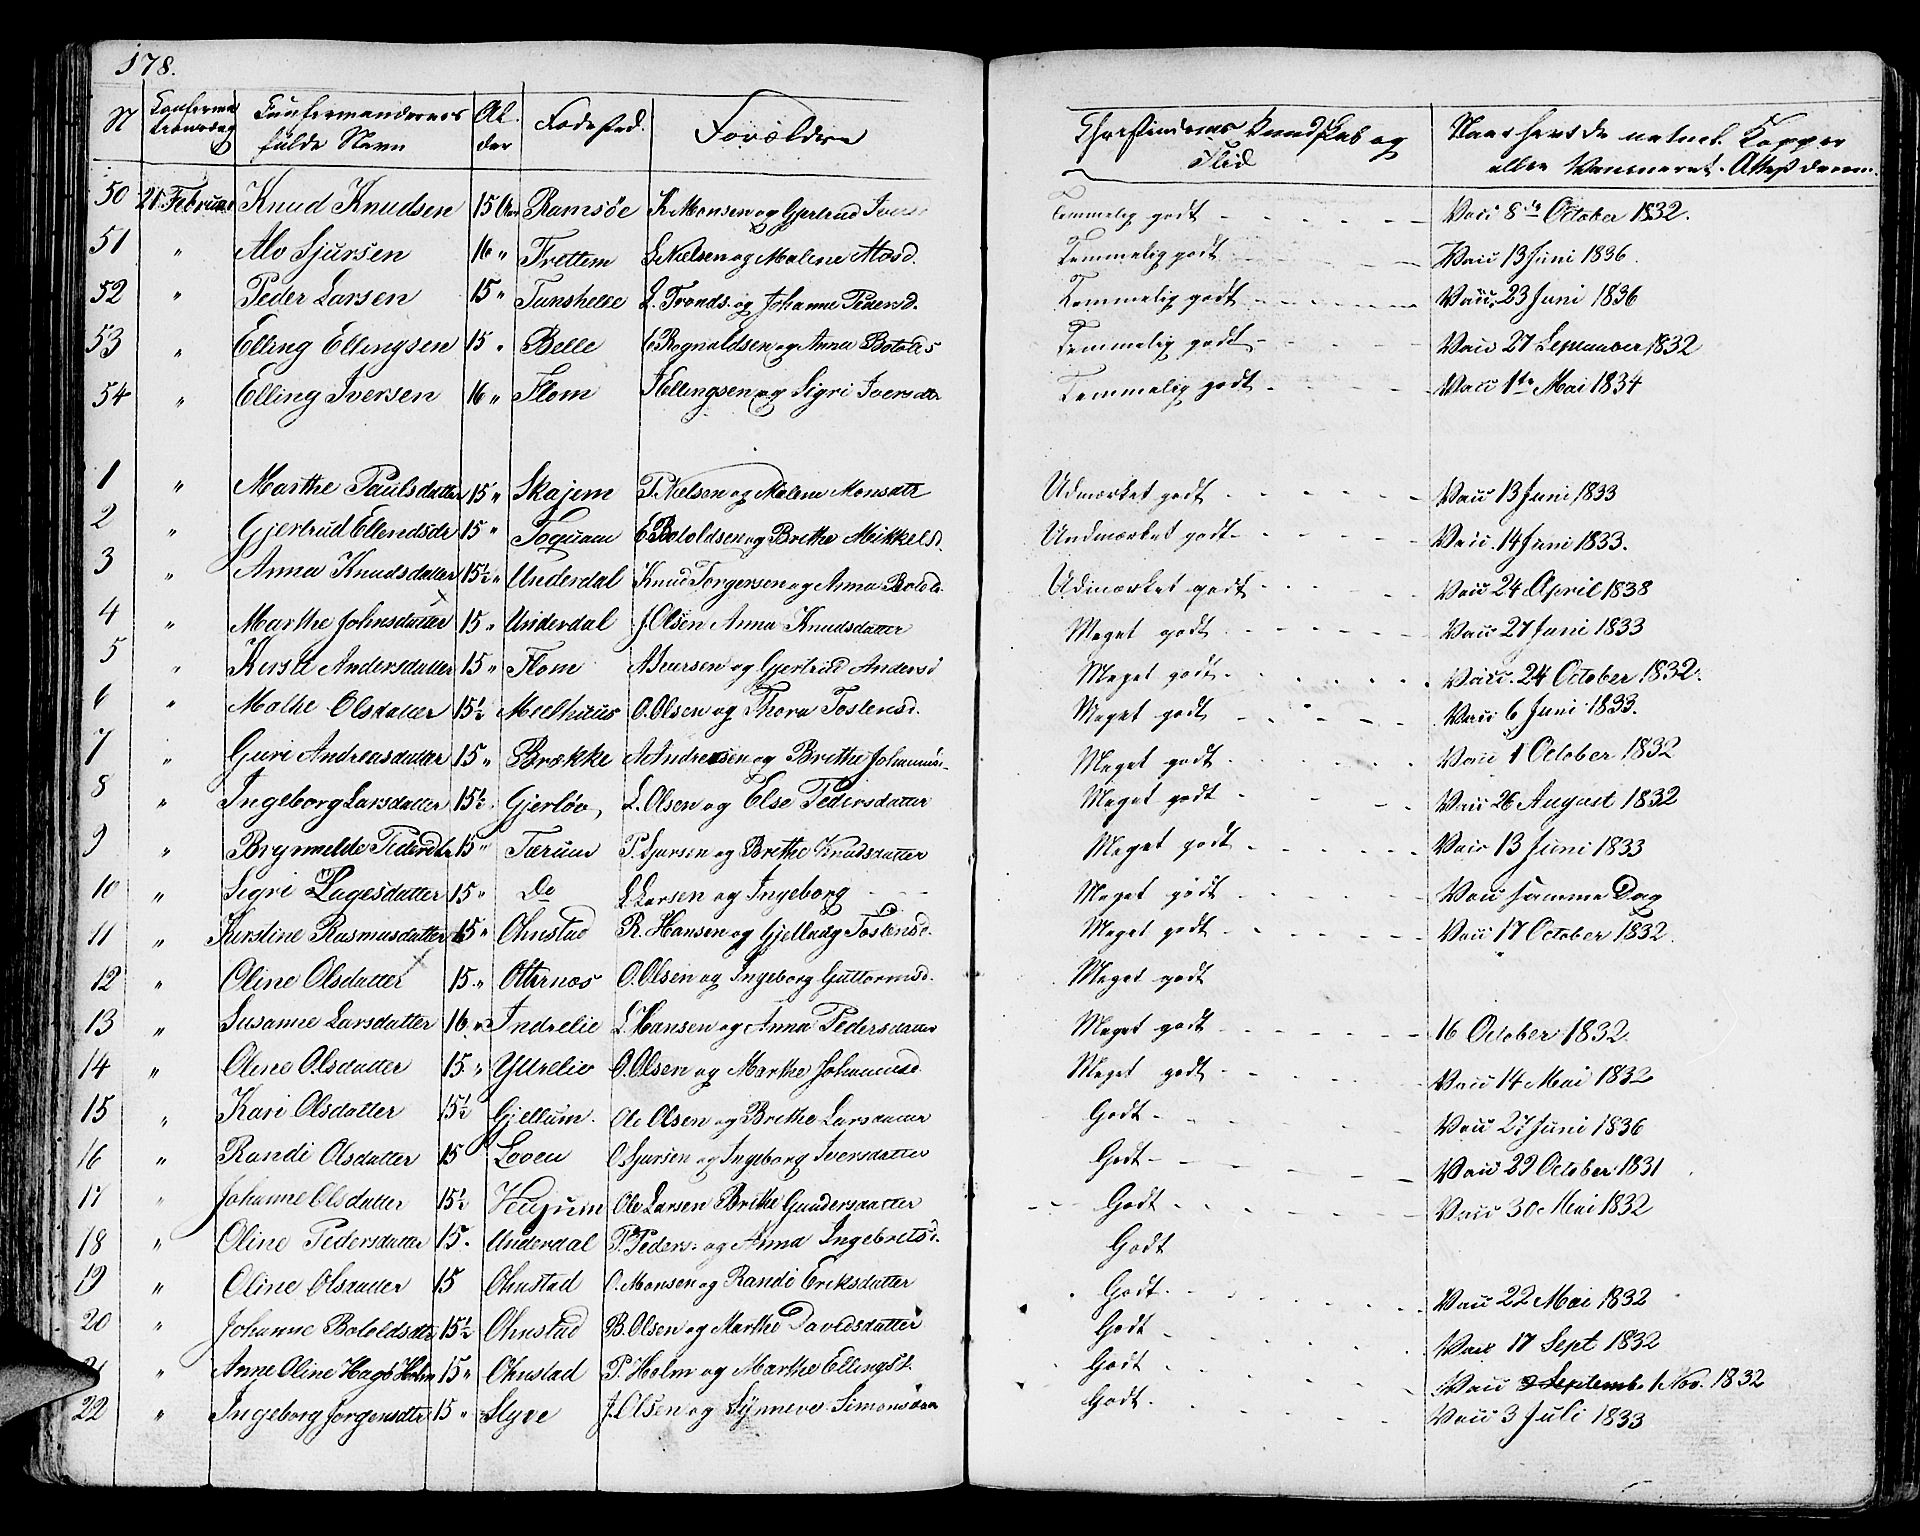 178.
N Konferma Confermandernes Al Fødested. Forældre Christendoms Kundskab og Naar havt de naturl. Kopper
tionsdag fulde Navn der Flid eller Vaccineret. Attest derom.
50 21 Februar Knud Knudsen 15 Aar Ramsøe K. Monsen og Gjertrud Ivers Temmelig godt Vacc 8de October 1832.
51 " Alo Sjursen 16 " Frettem S. Nielsen og Malene Alosd. Temmelig godt Vacc 13 Juni 1836.
52 " Peder Larsen 15 " Tunshelle L. Tronds. og Johanne Pedersd. Temmelig godt Vacc. 23 Juni 1836
53 " Elling Ellingsen 15 " Belle E Rognaldsen og Anna Botolds Temmelig godt Vacc 27 September 1832
54 " Elling Iversen 16 " Flom I Ellingsen og Sigri Iversdtr Temmelig godt Vacc 1te Mai 1834
1 " Marthe Paulsdatter 15 " Skajem P. Nielsen og Malene Monsdtr Udmærket godt Vacc 13 Juni 1833
2 " Gjertrud Ellendsdr 15 " Toqvam E Botoldsen og Brithe Mikkelsd. Undmærket godt Vacc. 14 Juni 1833.
3 " Anna Knudsdatter 15½ " Underdal Knud Torgersen og Anna Botold. Udmærket godt Vacc 24 April 1838
4 " Marthe Johnsdatter 15 " Underdal J. Olsen Anna Knudsdatter Meget godt Vacc 27 Juni 1833
5 " Kirsti Andersdatter 15 " Flom A Iversen og Gjertrud Andersd Meget godt Vacc. 24 October 1832.
6 " Mathe Olsdatter 15½ Meelhuus O. Olsen og Thora Tostensd. Meget godt Vacc 6 Juni 1833.
7 " Guri Andreasdatter 15 " Brække A Andresen og Brithe Johannes- Meget godt Vacc 1 October 1832
8 " Ingeborg Larsdatter 15½ Gjerløv L. Olsen og Else Pedersdatter Meget godt Vacc 26 August 1832
9 " Brynnelde Pedersdtr 15 " Tærum P. Sjursen og Brithe Knudsdatter Meget godt Vacc 13 Juni 1833
10 " Sigri Lagesdatter 15 " Do L Larsen og Ingeborg Meget godt Vacc samme Dag
11 " Kirstine Rasmusdatter 15 " Ohnstad R. Hansen og Gjellaug Tostensd. Meget godt Vacc 17 October 1832.
12 " Oline Olsdatter 15 " Otternæs O. Olsen og Ingeborg Guttormsd. Meget godt
13 " Susanne Larsdatter 16 " Indrelie L Hansen og Anna Pedersdatter Meget godt 16 October 1832.
14 " Oline Olsdatter 15 " Yttrelie O. Olsen og Marthe Johannesd. Meget godt Vacc 14 Mai 1832
15 " Kari Olsdatter 15½ Gjellum. Ole Olsen og Brithe Larsdatter Godt Vacc 27 Juni 1836
16 " Randi Olsdatter 15 Loven O Sjursen og Ingeborg Iversdatter Godt Vacc 29 October 1831
17 " Johanne Olsdatter 15½ Husum Ole Larsen Brithe Gundersdatter Godt Vacc 30 Mai 1832
18 " Oline Pedersdatter 15. Underdal P. Peders. og Anna Ingebretsd. Godt
19 " Oline Olsdatter 15 Ohnstad O. Monsen og Randi Eriksdatter Godt Vacc 22 Mai 1832
20 " Johanne Botoldsdtr 15½ Ohnstad B. Olsen og Marthe Davidsdatter Godt Vacc 17 Sept 1832
21 " Anne Oline Hagb Holm 15 " Ohnstad P. Holm og Marthe Ellingsd. Godt Vacc 9 Septemb. 1 Nov. 1832
22 " Ingeborg Jorgensdtr 15 " Styve J. Olsen og Synneve Simonsdtr Godt Vacc 3 Juli 1833